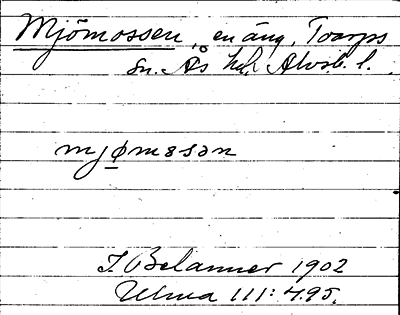 Mjömossen, en äng, Toarps
sn. Ås hd. Älvsb. l.
mjømosən
J. Belanner 1902
Ulma 111: 495.